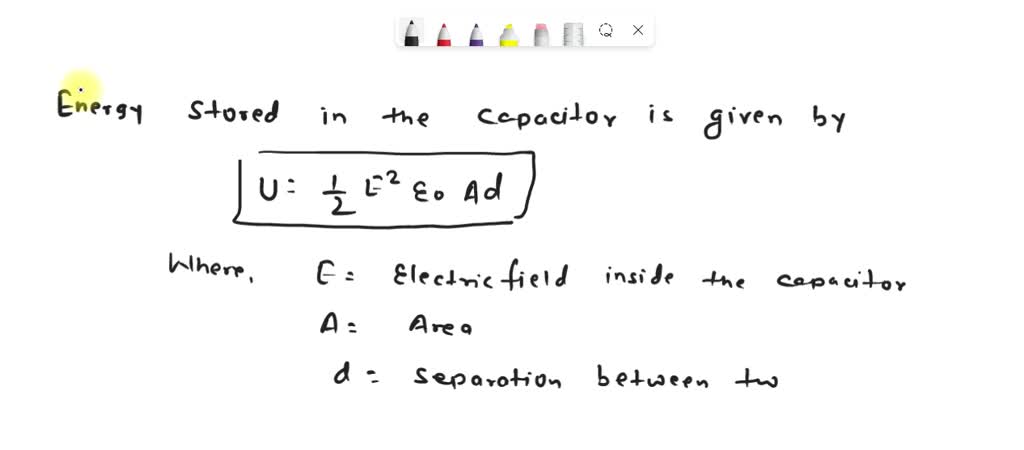 Energy stored in the capacitor is given by
U = 1/2 E² ε₀ Ad
Where, E = Electric field inside the capacitor
A = Area
d = separation between tw